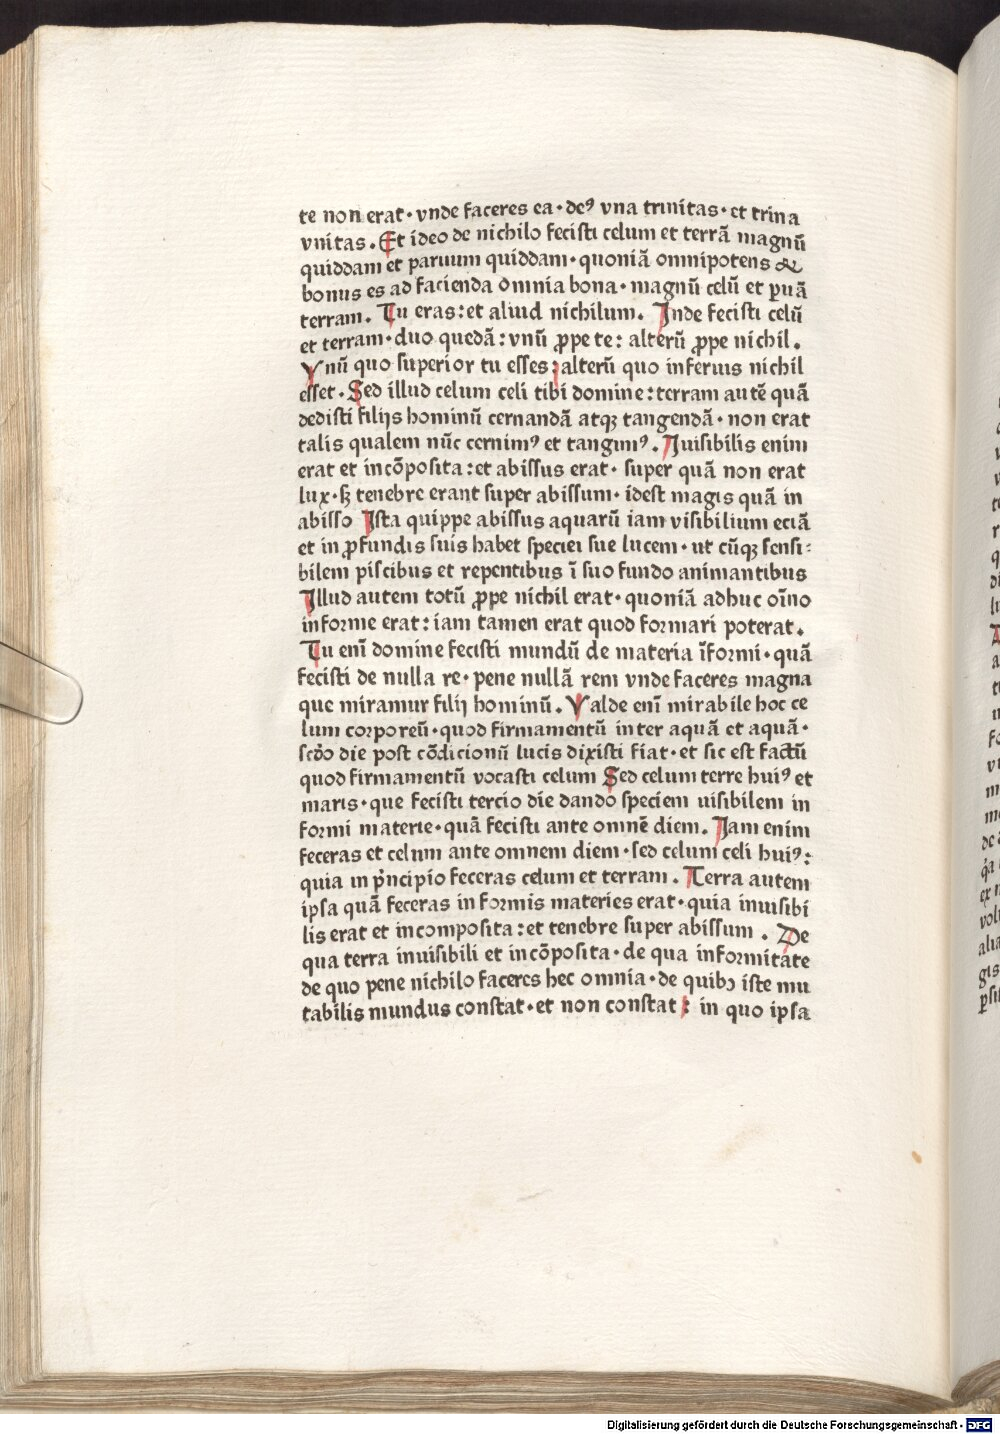 te non erat· vnde faceres ea· deꝰ vna trinitas· et trina
vnitas. Et ideo de nichilo fecisti celum et terrā magnū
quiddam et paruum quiddam· quoniā omnipotens &
bonus es ad facienda omnia bona· magnū celū et ꝑuā
terram. Tu eras: et aliud nichilum. Inde fecisti celū
et terram· duo quedā: vnū ꝓpe te: alterū ꝓpe nichil.
Vnū quo superior tu esses: alterū quo inferius nichil
esset. Sed illud celum celi tibi domine: terram autē quā
dedisti filijs hominū cernandā atqꝫ tangendā· non erat
talis qualem nūc cernimꝰ et tangimꝰ. Iuisibilis enim
erat et incōposita: et abissus erat· super quā non erat
lux· sꝫ tenebre erant super abissum· idest magis quā in
abisso Ista quippe abissus aquarū iam visibilium eciā
et in ꝓfundis suis habet speciei sue lucem· ut cūqꝫ sensi:
bilem piscibus et repentibus ī suo fundo animantibus
Illud autem totū ꝓpe nichil erat· quoniā adhuc oīno
informe erat: iam tamen erat quod formari poterat.
Tu enī domine fecisti mundū de materia īformi· quā
fecisti de nulla re· pene nullā rem vnde faceres magna
que miramur filij hominū. Valde enī mirabile hoc ce
lum corporeū· quod firmamentū inter aquā et aquā·
scđo die post cōdicionū lucis dixisti fiat· et sic est factū
quod firmamentū vocasti celum Sed celum terre huiꝰ et
maris· que fecisti tercio die dando speciem uisibilem in
formi materie· quā fecisti ante omnē diem. Iam enim
feceras et celum ante omnem diem· sed celum celi huiꝰ:
quia in pͥncipio feceras celum et terram. Terra autem
ipsa quā feceras informis materies erat· quia inuisibi
lis erat et incomposita: et tenebre super abissum. De
qua terra inuisibili et incōposita· de qua informitate
de quo pene nichilo faceres hec omnia· de quibꝯ iste mu
tabilis mundus constat· et non constat: in quo ipsa
Digitalisierung gefördert durch die Deutsche Forschungsgemeinschaft - DFG